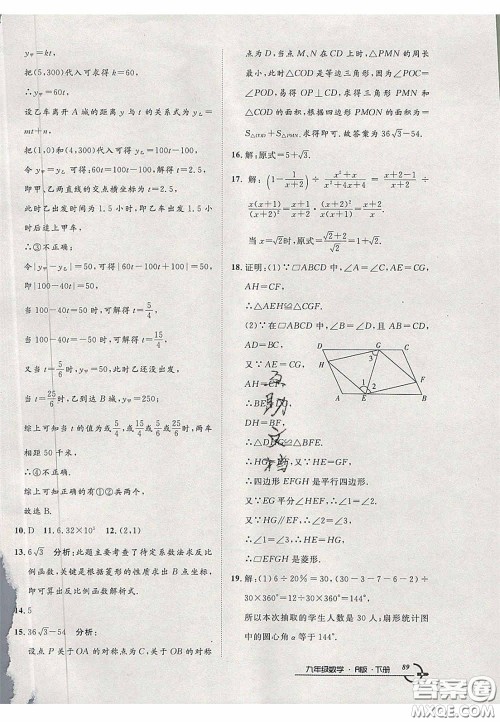 y甲=kt,
把(5,300)代入可求得k=60,
∴y甲=60t,
设乙车离开A城的距离y与t的关系式为y乙=
mt+n,
把(1,0)和(4,300)代入可得y乙=100t-100,
令y甲=y乙可得:60t=100t-100,解得t=2.5,
即甲、乙两直线的交点横坐标为t=2.5,
此时乙出发时间为1.5小时,即乙车出发1.5小
时后追上甲车.
∴③不正确;
令|y甲-y乙|=50,可得|60t-100t+100|=50,
即|100-40t|=50,
当100-40t=50时,可解得t=5/4,
当100-40t=-50时,可解得t=15/4,
又当t=5/6时,y甲=50,此时乙还没出发,
当t=25/6时,乙到达B城,y甲=250;
综上可知当t的值为5/4或15/4或5/6或25/6时,两车
相距50千米,
∴④不正确.
综上可知正确的有①②共两个,
故选B.
10.D 11.6.32×10³ 12.(2,1)
13.6√3 分析:此题主要考查了待定系数法求反比
例函数,关键是根据菱形的性质求出B点坐标,即可算出反比例函数解析式.
14.5
15.36√3-54 分析:
设点P关于OA的对称点为C,关于OB的对称
点为D,当点M、N在CD上时,△PMN的周长
最小,此时△COD是等边三角形,因为∠POC=
∠POD,易得OP⊥CD,求得四边形PMON的面积=
S△PMN=54,根据四边形PMON的面积=
求得即可.故答案为36√3-54.
16.解:原式=5+√3.
17.解:(1-1/(x+2))÷(x²+x)/(x²+4x+4)=(x+2-1)/(x+2)÷
x(x+1)/(x+2)²=(x+1)/(x+2)·(x+2)²/x(x+1)=(x+2)/x,
当x=√2时,原式=(√2+2)/√2=1+√2.
18.证明:(1)∵▱ABCD中,∠A=∠C,AE=CG,
AH=CF,
∴△AEH≌△CGF.
(2)∵在▱ABCD中,
AD=BC,
又∵AE=CG,
AH=CF,
∴BE=DG,
DH=BF,
∴△DHG≌△BFE.
∴HG=EF,又∵HE=GF,
∴四边形EFGH是平行四边形.
又∵EG平分∠HEF,∴∠1=∠2,
又∵HG∥EF,∴∠2=∠3,
∴∠1=∠3,∴HG=HE,
∴▱EFGH是菱形.
19.解:(1)6÷20%=30,(30-3-7-6-2)÷
30×360°=12÷30×360°=144°,
所以本次抽取的学生人数是30人;扇形统计图
中的圆心角α等于144°.
D G C
H 3 F
A E B
1 2
九年级数学·R版·下册 89
答案圈
MXQE.COM